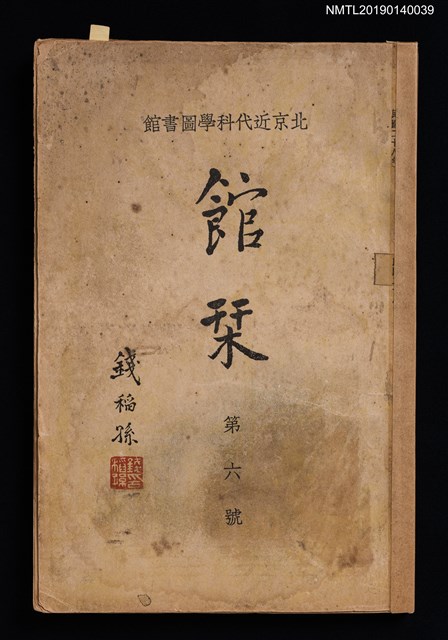 NMTL20190140039
北京近代科學圖書館
館
栞
第六號
錢稻孫